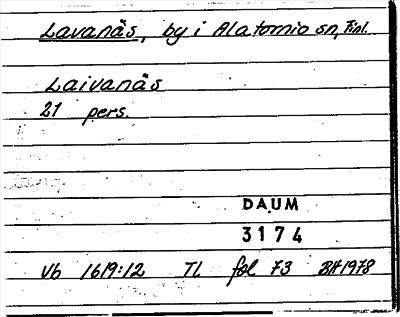 Lavanäs, by i Alatornio sn, Finl.
Laivanäs
21 pers.
DAUM
3174
Vb 1619:12 Tl. fol 73 BH 1978